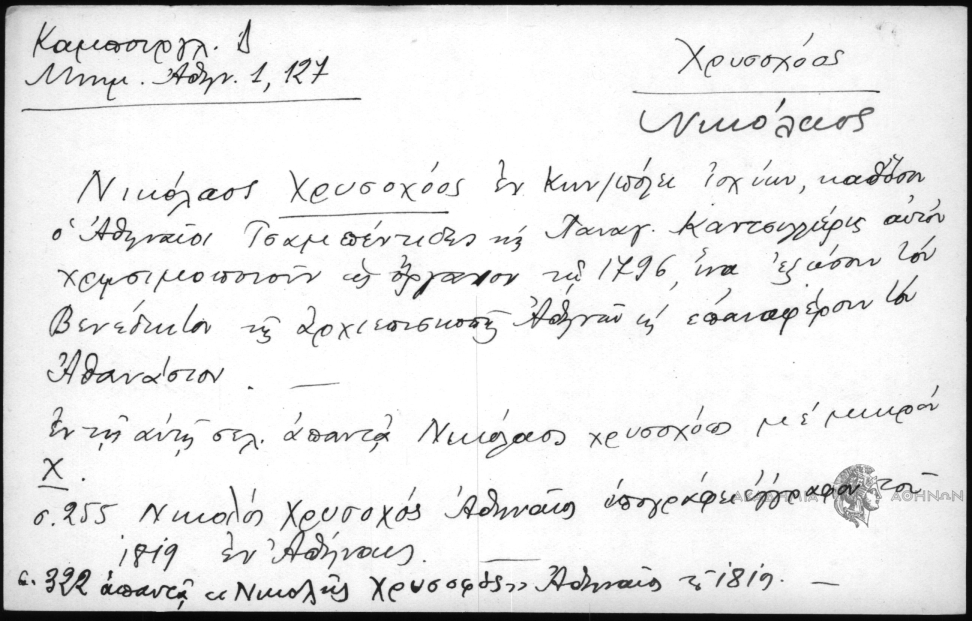 Καμπουργλ. Δ
Μνημ. Ἀθην. 1, 127
Χρυσοχόος
Νικόλαος
Νικόλαος Χρυσοχόος ἐν Κων/πόλει ἰσχύων, καθ' ὅσον
ὁ Ἀθηναῖοι Τσαμπέντιδες κ Παναγ. Καντσιλλιέρις αὐτὸν
χρησιμοποιοῦν ὡς ὄργανον τῷ 1796, ἵνα ἐξώσουν τὸν
Βενέδικτον τῆς ἀρχιεπισκοπῆς Ἀθηνῶν κ ἐπαναφέρουν τὸν
Ἀθανάσιον. —
Ἐν τῇ αὐτῇ σελ. ἀπαντᾷ Νικόλαος χρυσοχόος μὲ μικρὸν
χ.
σ. 255 Νικολὸς Χρυσοχός Ἀθηναῖος ὑπογράφει ἔγγραφον τοῦ
1819 ἐν Ἀθήναις. —
σ. 322 ἀπαντᾷ «Νικολῆς Χρυσοφὸς» Ἀθηναῖος τῷ 1819. —
ΑΚΑΔΗΜΙΑ ΑΘΗΝΩΝ